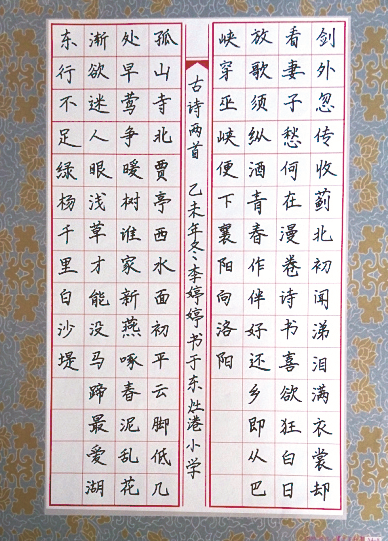 剑外忽传收蓟北初闻涕泪满衣裳却
看妻子愁何在漫卷诗书喜欲狂白日
放歌须纵酒青春作伴好还乡即从巴
峡穿巫峡便下襄阳向洛阳
古诗两首 乙未年冬李婷婷书于东灶港小学
孤山寺北贾亭西水面初平云脚低几
处早莺争暖树谁家新燕啄春泥乱花
渐欲迷人眼浅草才能没马蹄最爱湖
东行不足绿杨千里白沙堤